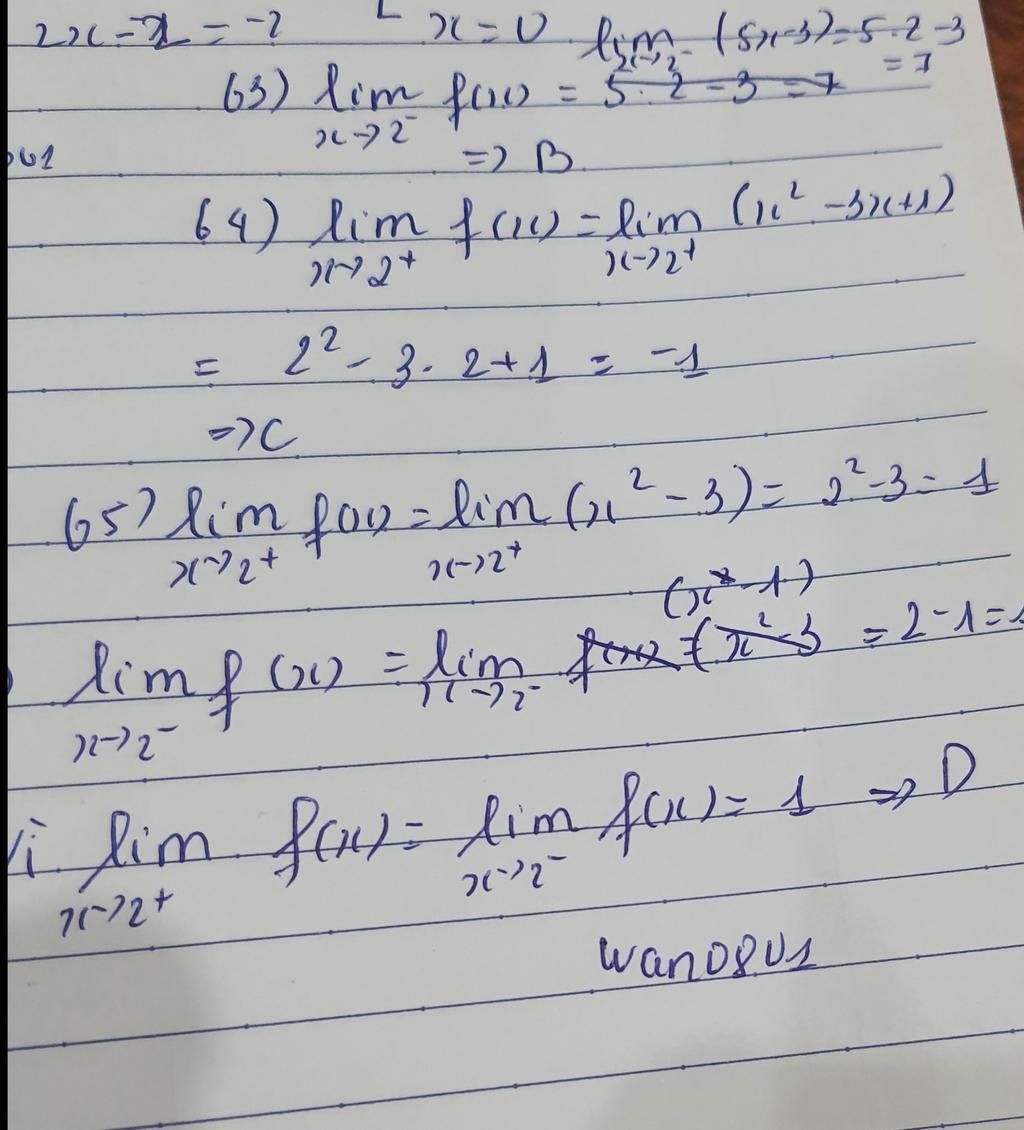 2x - 2 = -2 x = 0 lim x→2⁻ (5x-3) = 5·2-3
63) lim x→2⁻ f(x) = 5·2-3=7 = 7
⇒ B
64) lim x→2⁺ f(x) = lim x→2⁺ (x² - 3x+1)
= 2² - 3·2+1 = -1
⇒ C
65) lim x→2⁺ f(x) = lim x→2⁺ (x² - 3) = 2²-3 = 1
lim x→2⁻ f(x) = lim x→2⁻ f(x) = (x²-3 (x-1) = 2-1=1
lim x→2⁺ f(x) = lim x→2⁻ f(x) = 1 ⇒ D
wan0801